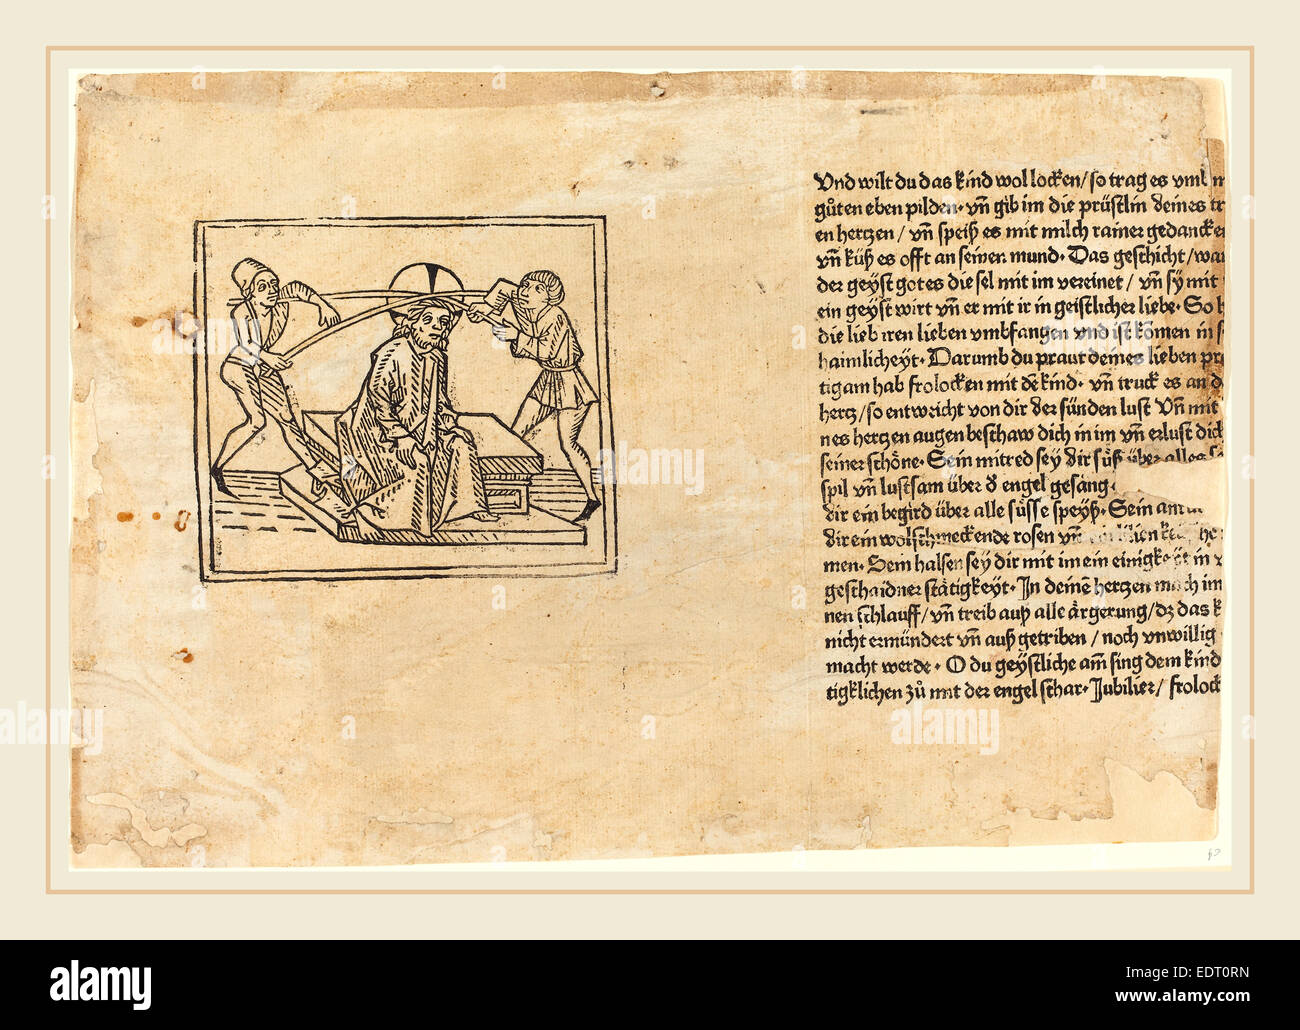 Vnd wilt du das kind wol locken/ so trag es vmb
gůten eben pilden· vn̄ gib im die prüstlin deines
en hertzen/ vn̄ speiß es mit milch rainer gedancken
vn̄ küß es offt an seinen mund· Das geschicht/
der geÿst gotes die sel mit im vereinet/ vn̄ sy mit
ein geÿst wirt vn̄ er mit ir in geistlicher liebe· So
die lieb iren lieben vmbfangen vnd ist kōmen in
haimlicheyt· Darumb du praut deines lieben
tigam hab frolocken mit dē kind· vn̄ truck es an
hertz/ so entweicht von dir der sünden lust Vn̄ mit
nes hertzen augen beschaw dich in im vn̄ erlust dich
seiner schöne· Sein mitred sey dir süß über alles
spil vn̄ lustsam über d̄ engel gesang·
dir ein begird über alle süsse speÿß· Sein
dir ein wolschmeckende rosen vn̄
men· Sein halsen sey dir mit im ein einigkeÿt in
geschaidner stätigkeyt· In deinē hertzen mach im
nen schlauff/ vn̄ treib auß alle ärgerung/ dz das
nicht ermündert vn̄ auß getriben/ noch vnwillig
macht werde· O du geÿstliche am̄ sing dem kind
tigklichen zů mit der engel schar· Jubilier/ frolock
alamy
a
alamy
Image ID: EDT0RN
www.alamy.com